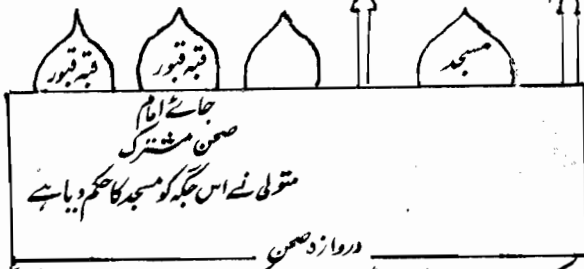 مسجد
قبہ قبور
قبہ قبور
جائے امام
صحن مشترک
متولی نے اس جگہ کو مسجد کا حکم دیا ہے
دروازہ صحن